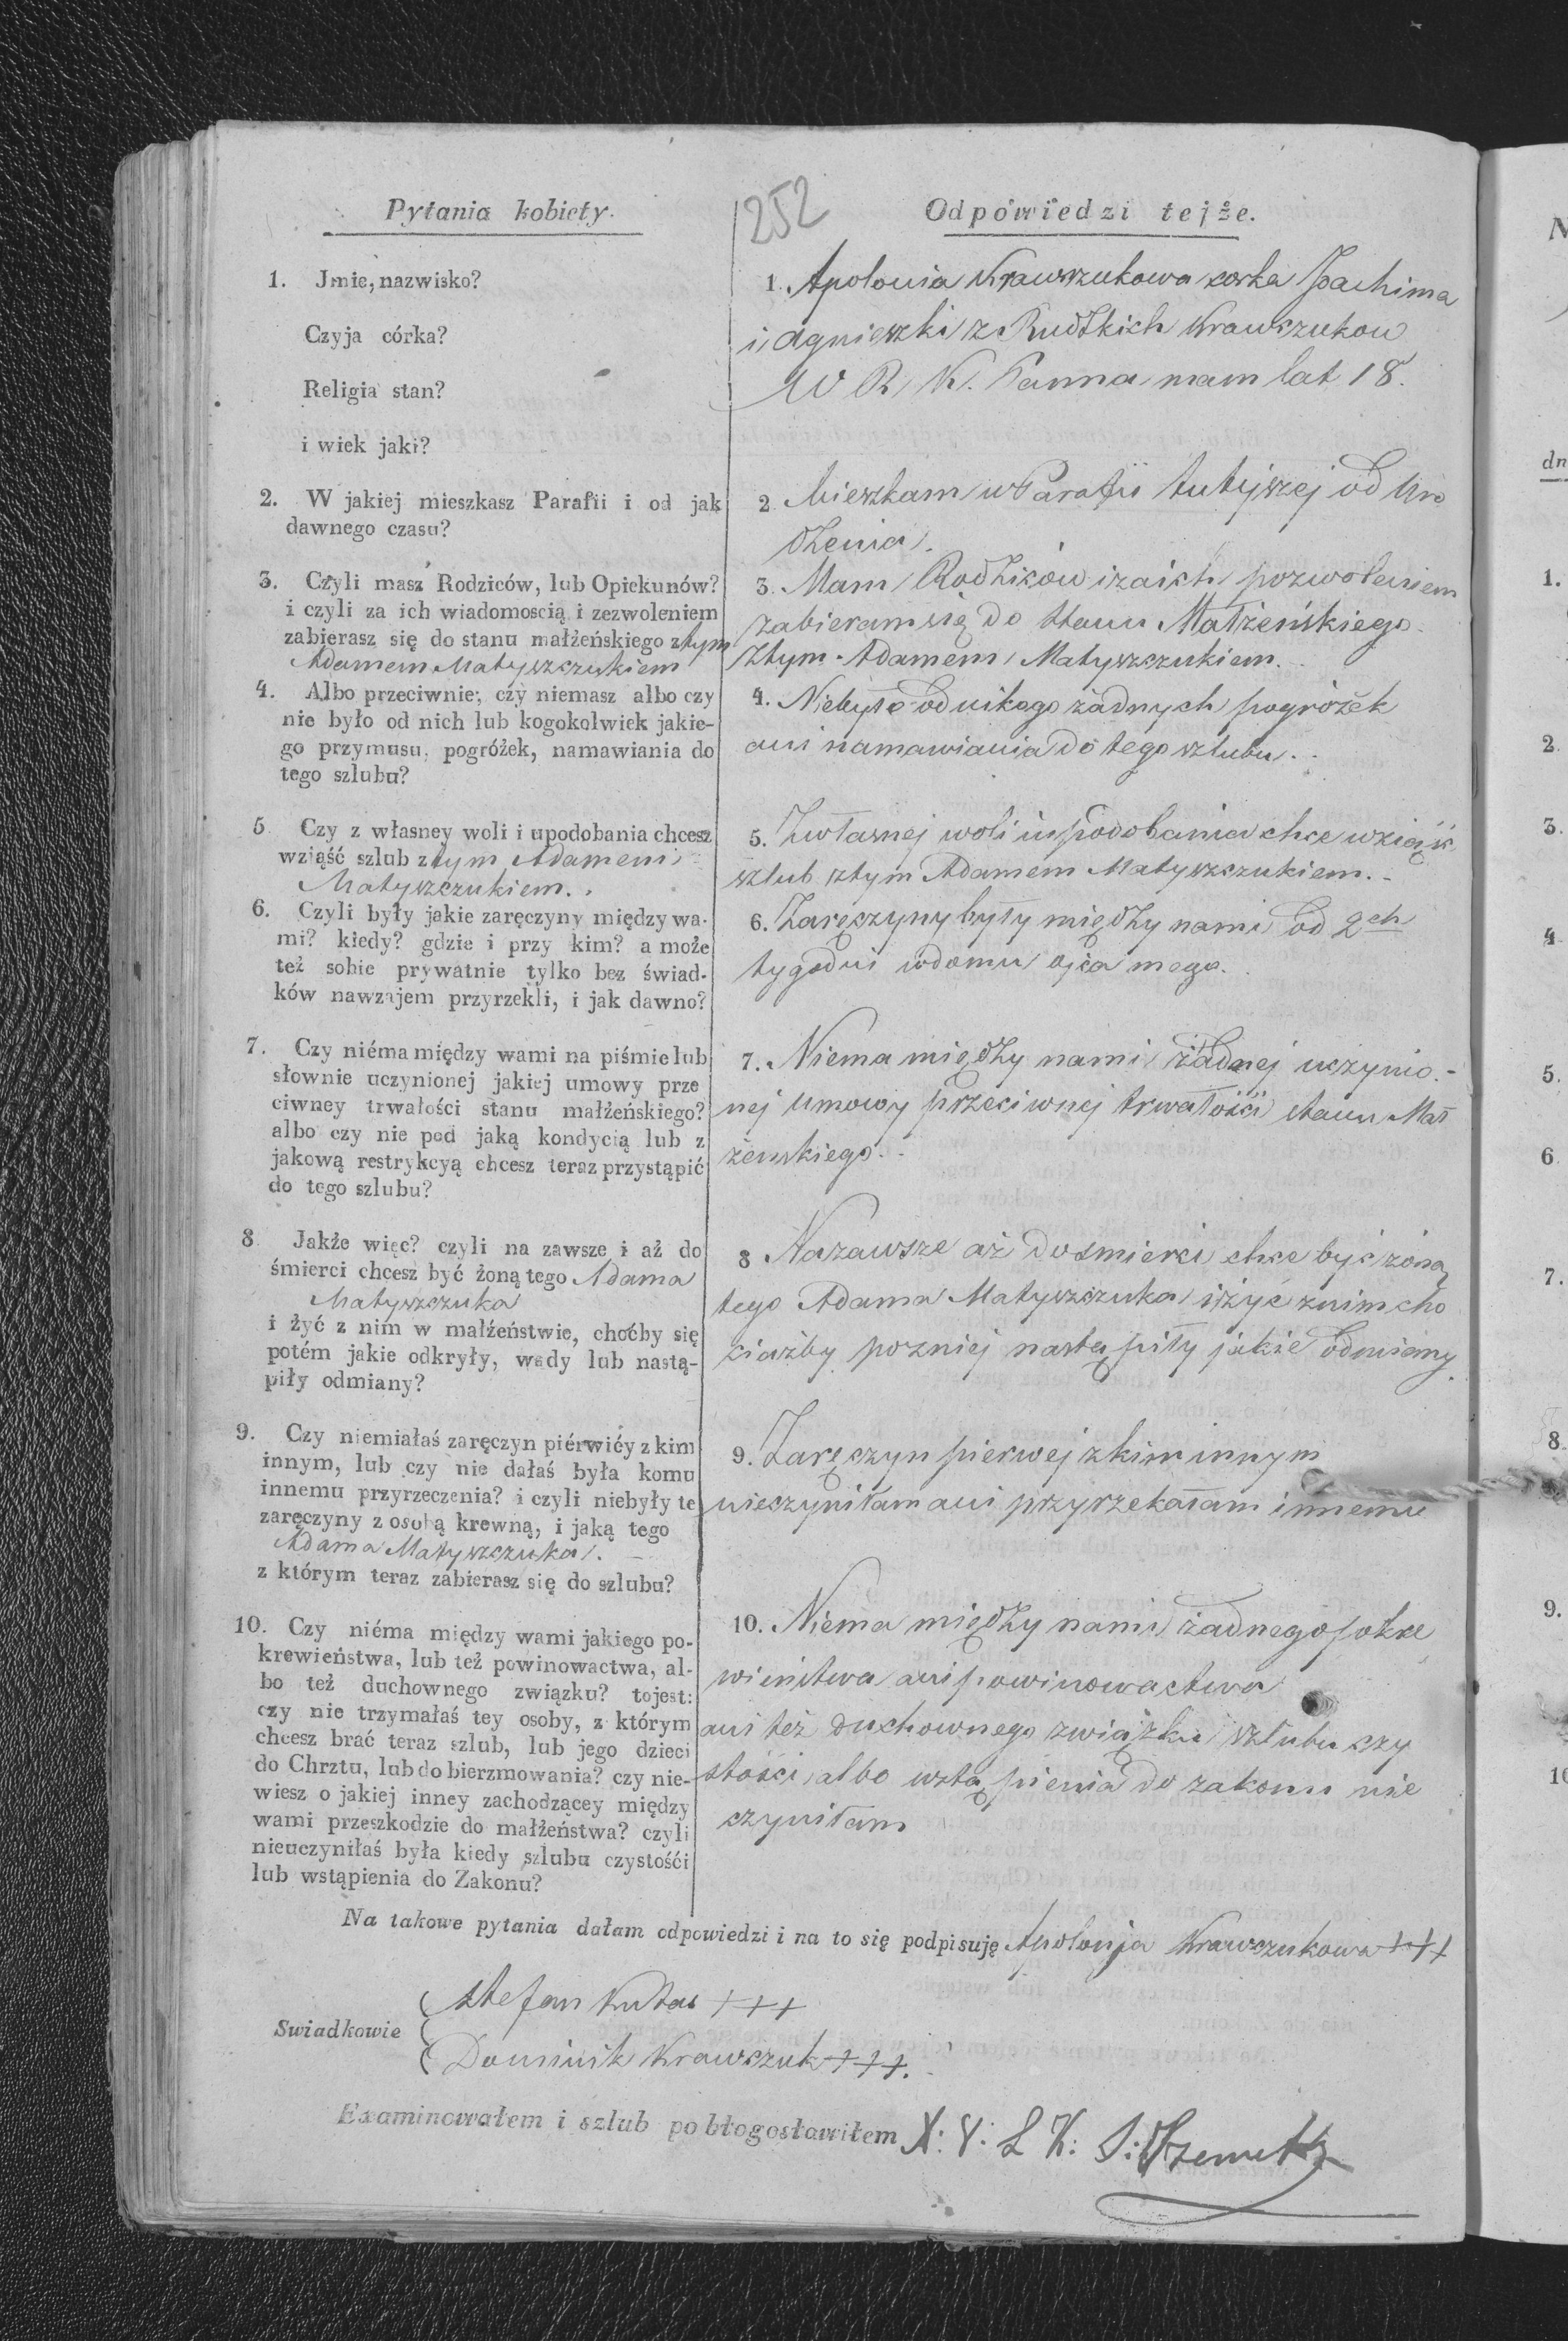 252
Pytania kobiety.
1. Jmie, nazwisko?
Czyja córka?
Religia stan?
i wiek jaki?
2. W jakiej mieszkasz Parafii i od jak
dawnego czasu?
3. Czyli masz Rodziców, lub Opiekunów?
i czyli za ich wiadomoscią i zezwoleniem
zabierasz się do stanu małżeńskiego z tym
Adamem Matyszczukiem
4. Albo przeciwnie, czy niemasz albo czy
nie było od nich lub kogokolwiek jakie-
go przymusu, pogróżek, namawiania do
tego szlubu?
5 Czy z własney woli i upodobania chcesz
wziąść szlub z tym Adamem
Matyszczukiem.
6. Czyli były jakie zaręczyny między wa-
mi? kiedy? gdzie i przy kim? a może
też sobie prywatnie tylko bez świad-
ków nawzajem przyrzekli, i jak dawno?
7. Czy niéma między wami na piśmie lub
słownie uczynionej jakiej umowy prze
ciwney trwałości stanu małżeńskiego?
albo czy nie pod jaką kondycią lub z
jakową restrykcyą chcesz teraz przystąpić
do tego szlubu?
8 Jakże więc? czyli na zawsze i aż do
śmierci chcesz być żoną tego Adama
Matyszczuka
i żyć z nim w małżeństwie, choćby się
potém jakie odkryły, wady lub nastą-
piły odmiany?
9. Czy niemiałaś zaręczyn piérwiéy z kim
innym, lub czy nie dałaś była komu
innemu przyrzeczenia? i czyli niebyły te
zaręczyny z osobą krewną, i jaką tego
Adama Matyszczuka.
z którym teraz zabierasz się do szlubu?
10. Czy niéma między wami jakiego po-
krewieństwa, lub też powinowactwa, al-
bo też duchownego związku? tojest:
czy nie trzymałaś tey osoby, z którym
chcesz brać teraz szlub, lub jego dzieci
do Chrztu, lub do bierzmowania? czy nie-
wiesz o jakiej inney zachodzącey między
wami przeszkodzie do małżeństwa? czyli
nieuczyniłaś była kiedy szlubu czystośći
lub wstąpienia do Zakonu?
Odpowiedzi tejże.
1. Apolonia Krawczukowa corka Joachima
i Agnieszki z Rudzkich Krawczukow
W R K. Panna mam lat 18.
2 Mieszkam w Parafii tutejszej od Uro
dzenia.
3. Mam Rodzicow i za ich pozwoleniem
zabieram się do stanu Małżeńskiego
z tym Adamem Matyszczukiem.
4. Niebyło od nikogo żadnych pogróżek
ani namawiania do tego szlubu.
5. Z własnej woli i upodobania chce wziąść
szlub z tym Adamem Matyszczukiem.
6. Zaręczyny były między nami od 2ch
tygodni w domu ojca mego.
7. Niema między nami żadnej uczynio-
nej umowy przeciwnej trwałości stanu Mał
żenskiego.
8 Nazawsze aż do smierci chce być żoną
tego Adama Matyszczuka i żyć z nim cho
ciażby pozniej nastąpiły jakie odmiany.
9. Zaręczyn pierwej z kim innym
nieczyniłam ani przyrzekałam innemu
10. Niema między nami żadnego pokre
wieństwa ani powinowactwa
ani też duchownego związku szlubu czy
stości albo wstąpienia do zakonu nie
czyniłam
Na takowe pytania dałam odpowiedzi i na to się podpisuję Apolonja Krawczukowa +++
Swiadkowie
Stefan Kutas +++
Dominik Krawczuk +++.
Examinowałem i szlub pobłogosławiłem X:
N
dn
1.
2.
3.
4
5.
6
7.
8.
9.
10